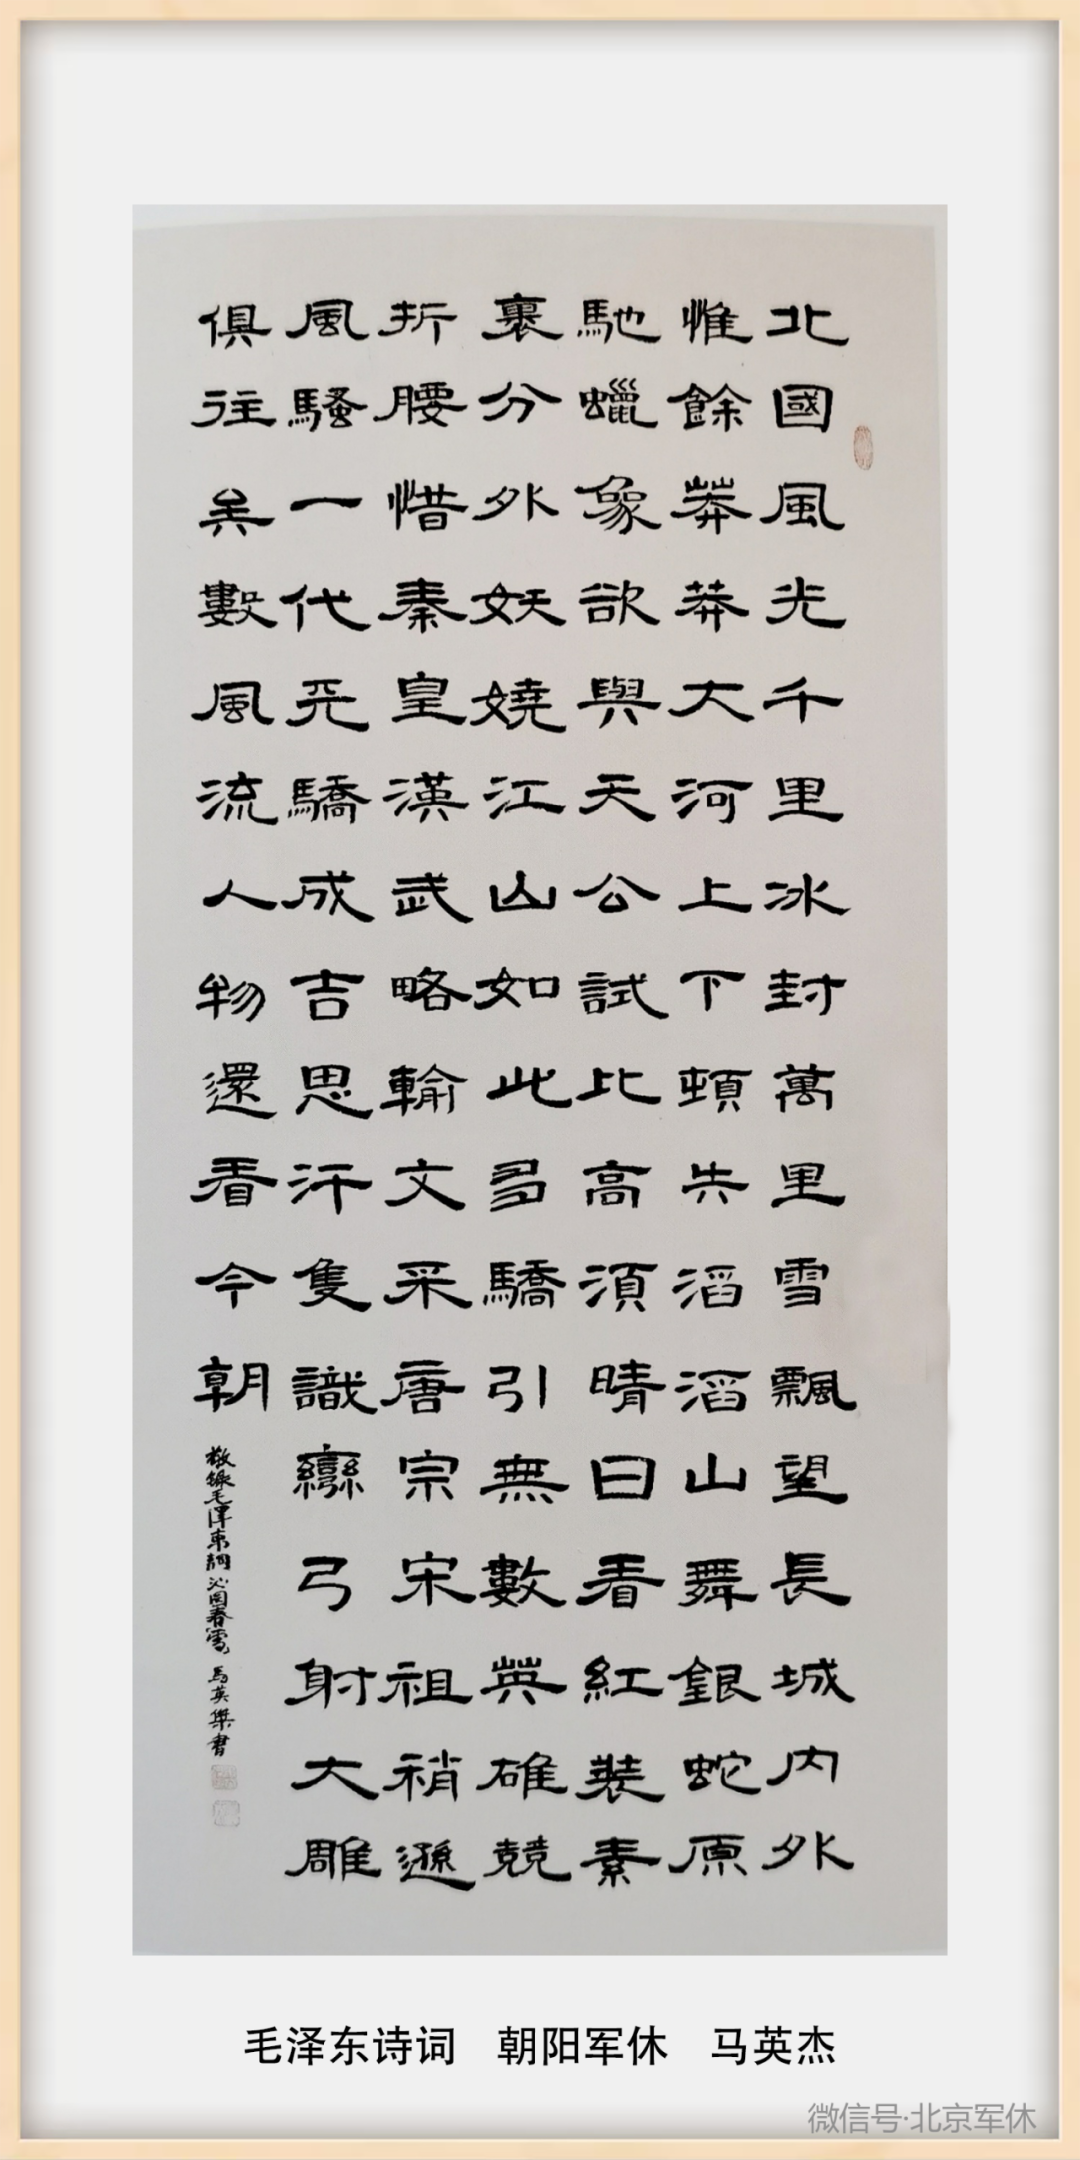 北國風光千里冰封萬里雪飄望長城内外
惟餘莽莽大河上下頓失滔滔山舞銀蛇原
馳蠟象欲與天公試比高須晴日看紅裝素
裹分外妖嬈江山如此多驕引無數英雄競
折腰惜秦皇漢武略輸文采唐宗宋祖稍遜
風騷一代天驕成吉思汗隻識彎弓射大雕
俱往矣數風流人物還看今朝
敬錄毛澤東詞沁园春雪 馬英傑書
毛泽东诗词 朝阳军休 马英杰
微信号·北京军休